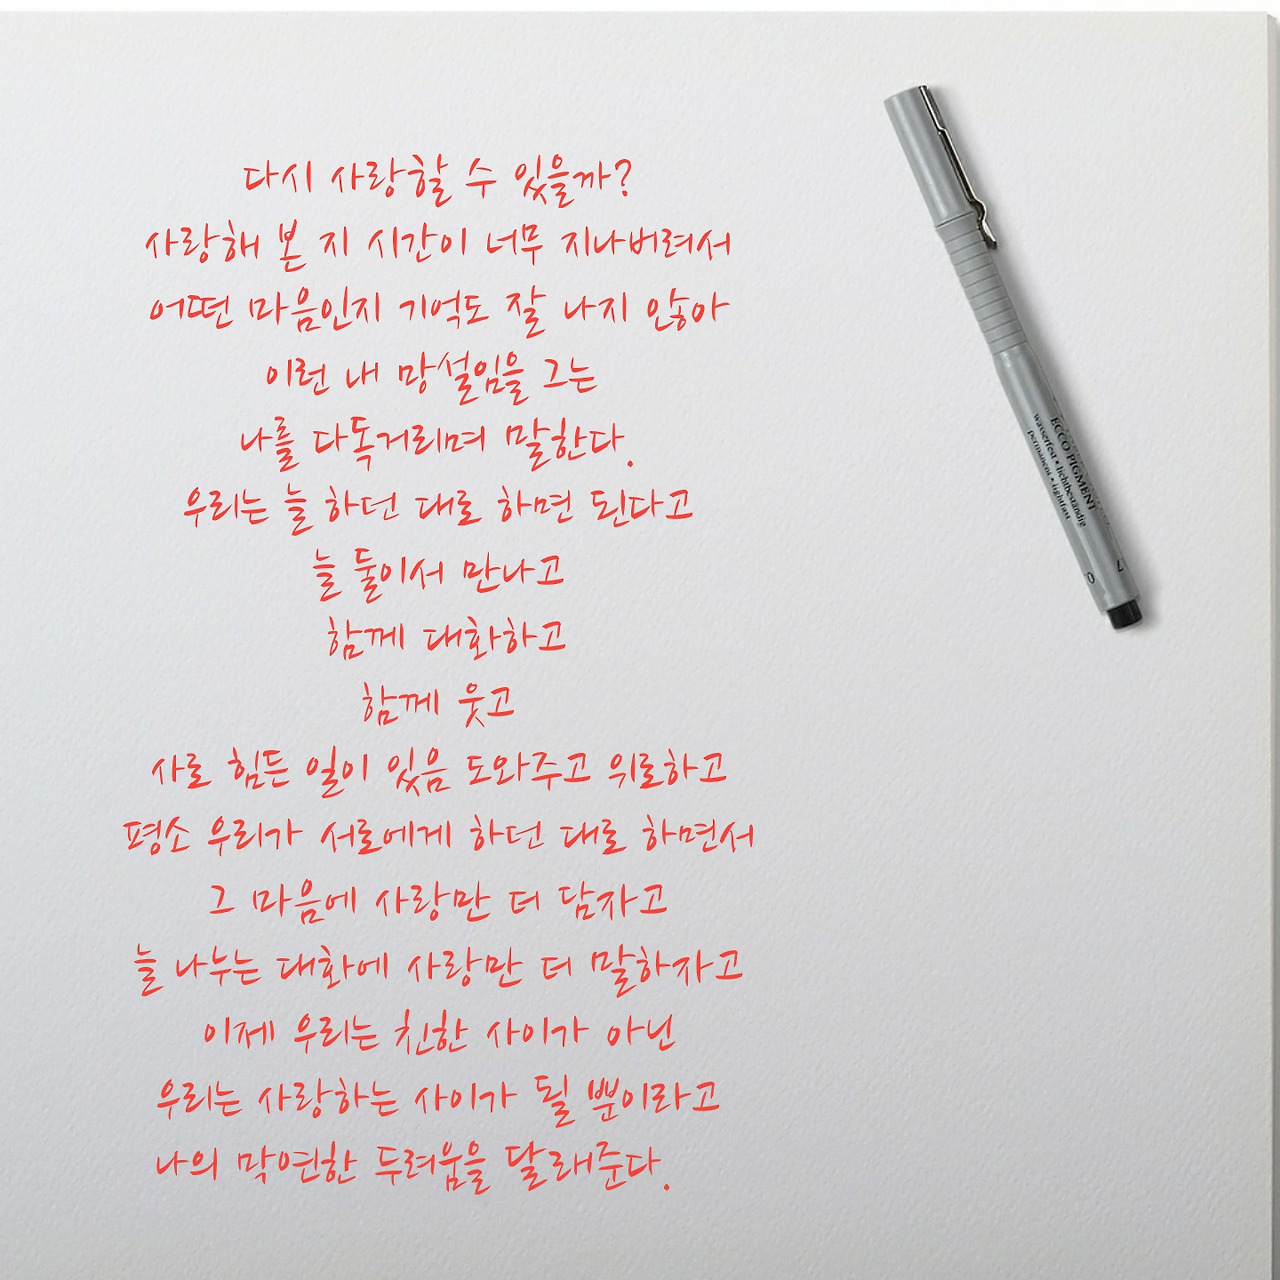 다시 사랑할 수 있을까?
사랑해 본 지 시간이 너무 지나버려서
어떤 마음인지 기억도 잘 나지 않아
이런 내 망설임을 그는
나를 다독거리며 말한다.
우리는 늘 하던 대로 하면 된다고
늘 둘이서 만나고
함께 대화하고
함께 웃고
사로 힘든 일이 있음 도와주고 위로하고
평소 우리가 서로에게 하던 대로 하면서
그 마음에 사랑만 더 담자고
늘 나누는 대화에 사랑만 더 말하자고
이제 우리는 친한 사이가 아닌
우리는 사랑하는 사이가 될 뿐이라고
나의 막연한 두려움을 달래준다.
ECCO PIGMENT
wasserfest • lichtbeständig
permanent • lightfast
0 7